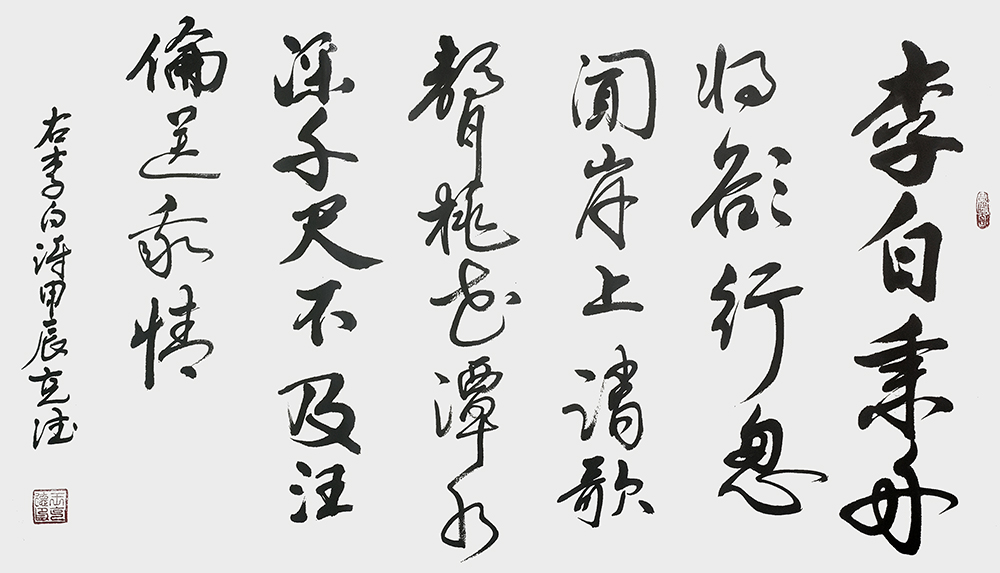 李白乘舟
将欲行忽
聞岸上踏歌
聲桃花潭水
深千尺不及汪
倫送我情
右李白詩甲辰